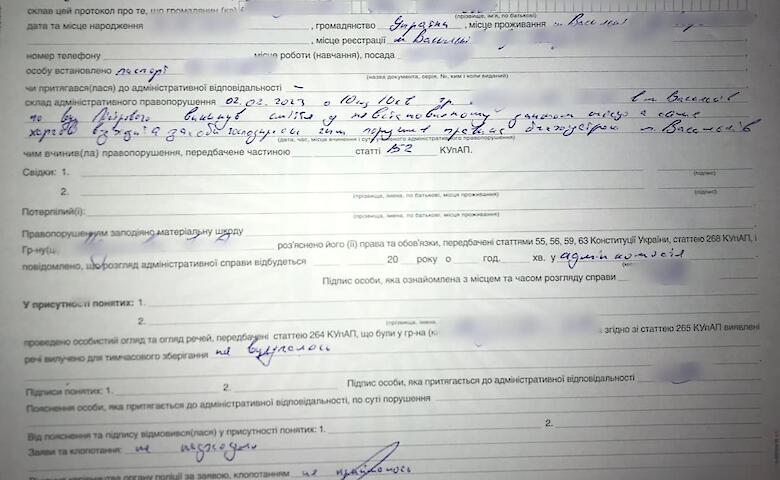 склав цей протокол про те, що громадянин (ка)
(прізвище, ім'я, по батькові)
дата та місце народження , громадянство Україна , місце проживання м Васильків
, місце реєстрації м Васильків
номер телефону місце роботи (навчання), посада
особу встановлено паспорт
(назва документа, серія, №, ким і коли виданий)
чи притягався(лася) до адміністративної відповідальності –
склад адміністративного правопорушення 02.02.2023 о 10 год 10 хв гр. в м Васильків
по вул викинув сміття у невідповідному місці а саме
правила благоустрою м. Васильків
(дата, час, місце вчинення і суть адміністративного правопорушення)
чим вчинив(ла) правопорушення, передбачене частиною статті 152 КУпАП.
Свідки: 1.
(прізвище, імена, по батькові, місце проживання) (підпис)
2.
(прізвище, імена, по батькові, місце проживання) (підпис)
Потерпілий(і):
(прізвище, імена, по батькові, місце проживання)
Правопорушенням заподіяно матеріальну шкоду
Гр-ну(ці) роз'яснено його (її) права та обов'язки, передбачені статтями 55, 56, 59, 63 Конституції України, статтею 268 КУпАП, і
повідомлено, що розгляд адміністративної справи відбудеться 20 року о год. хв. у адмін комісія
Підпис особи, яка ознайомлена з місцем та часом розгляду справи
У присутності понятих: 1.
2.
(прізвище, імена,
проведено особистий огляд та огляд речей, передбачені статтею 264 КУпАП, що були у гр-на (ки) згідно зі статтею 265 КУпАП виявлені
речі вилучено для тимчасового зберігання не вилучалось
Підписи понятих: 1. 2. Підпис особи, яка притягається до адміністративної відповідальності
Пояснення особи, яка притягається до адміністративної відповідальності, по суті порушення
Від пояснення та підпису відмовився(лася) у присутності понятих: 1. 2.
Заяви та клопотання: не надходило
органу поліції за заявою, клопотанням не приймалось